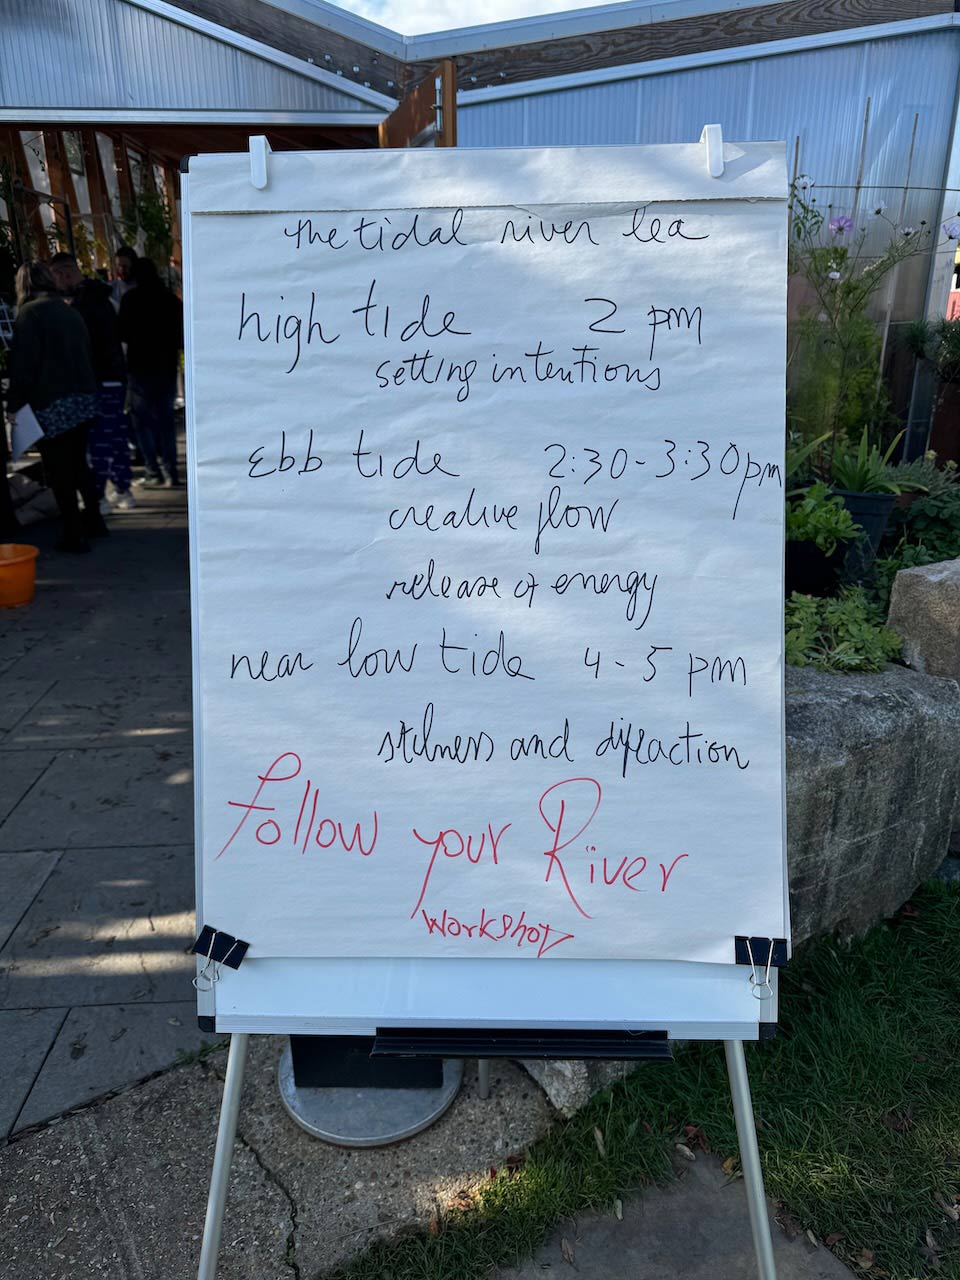 the tidal river lea
high tide 2 pm
setting intentions
Ebb tide 2:30-3:30pm
creative flow
release of energy
near low tide 4-5 pm
stilness and difraction
Follow your River
workshop